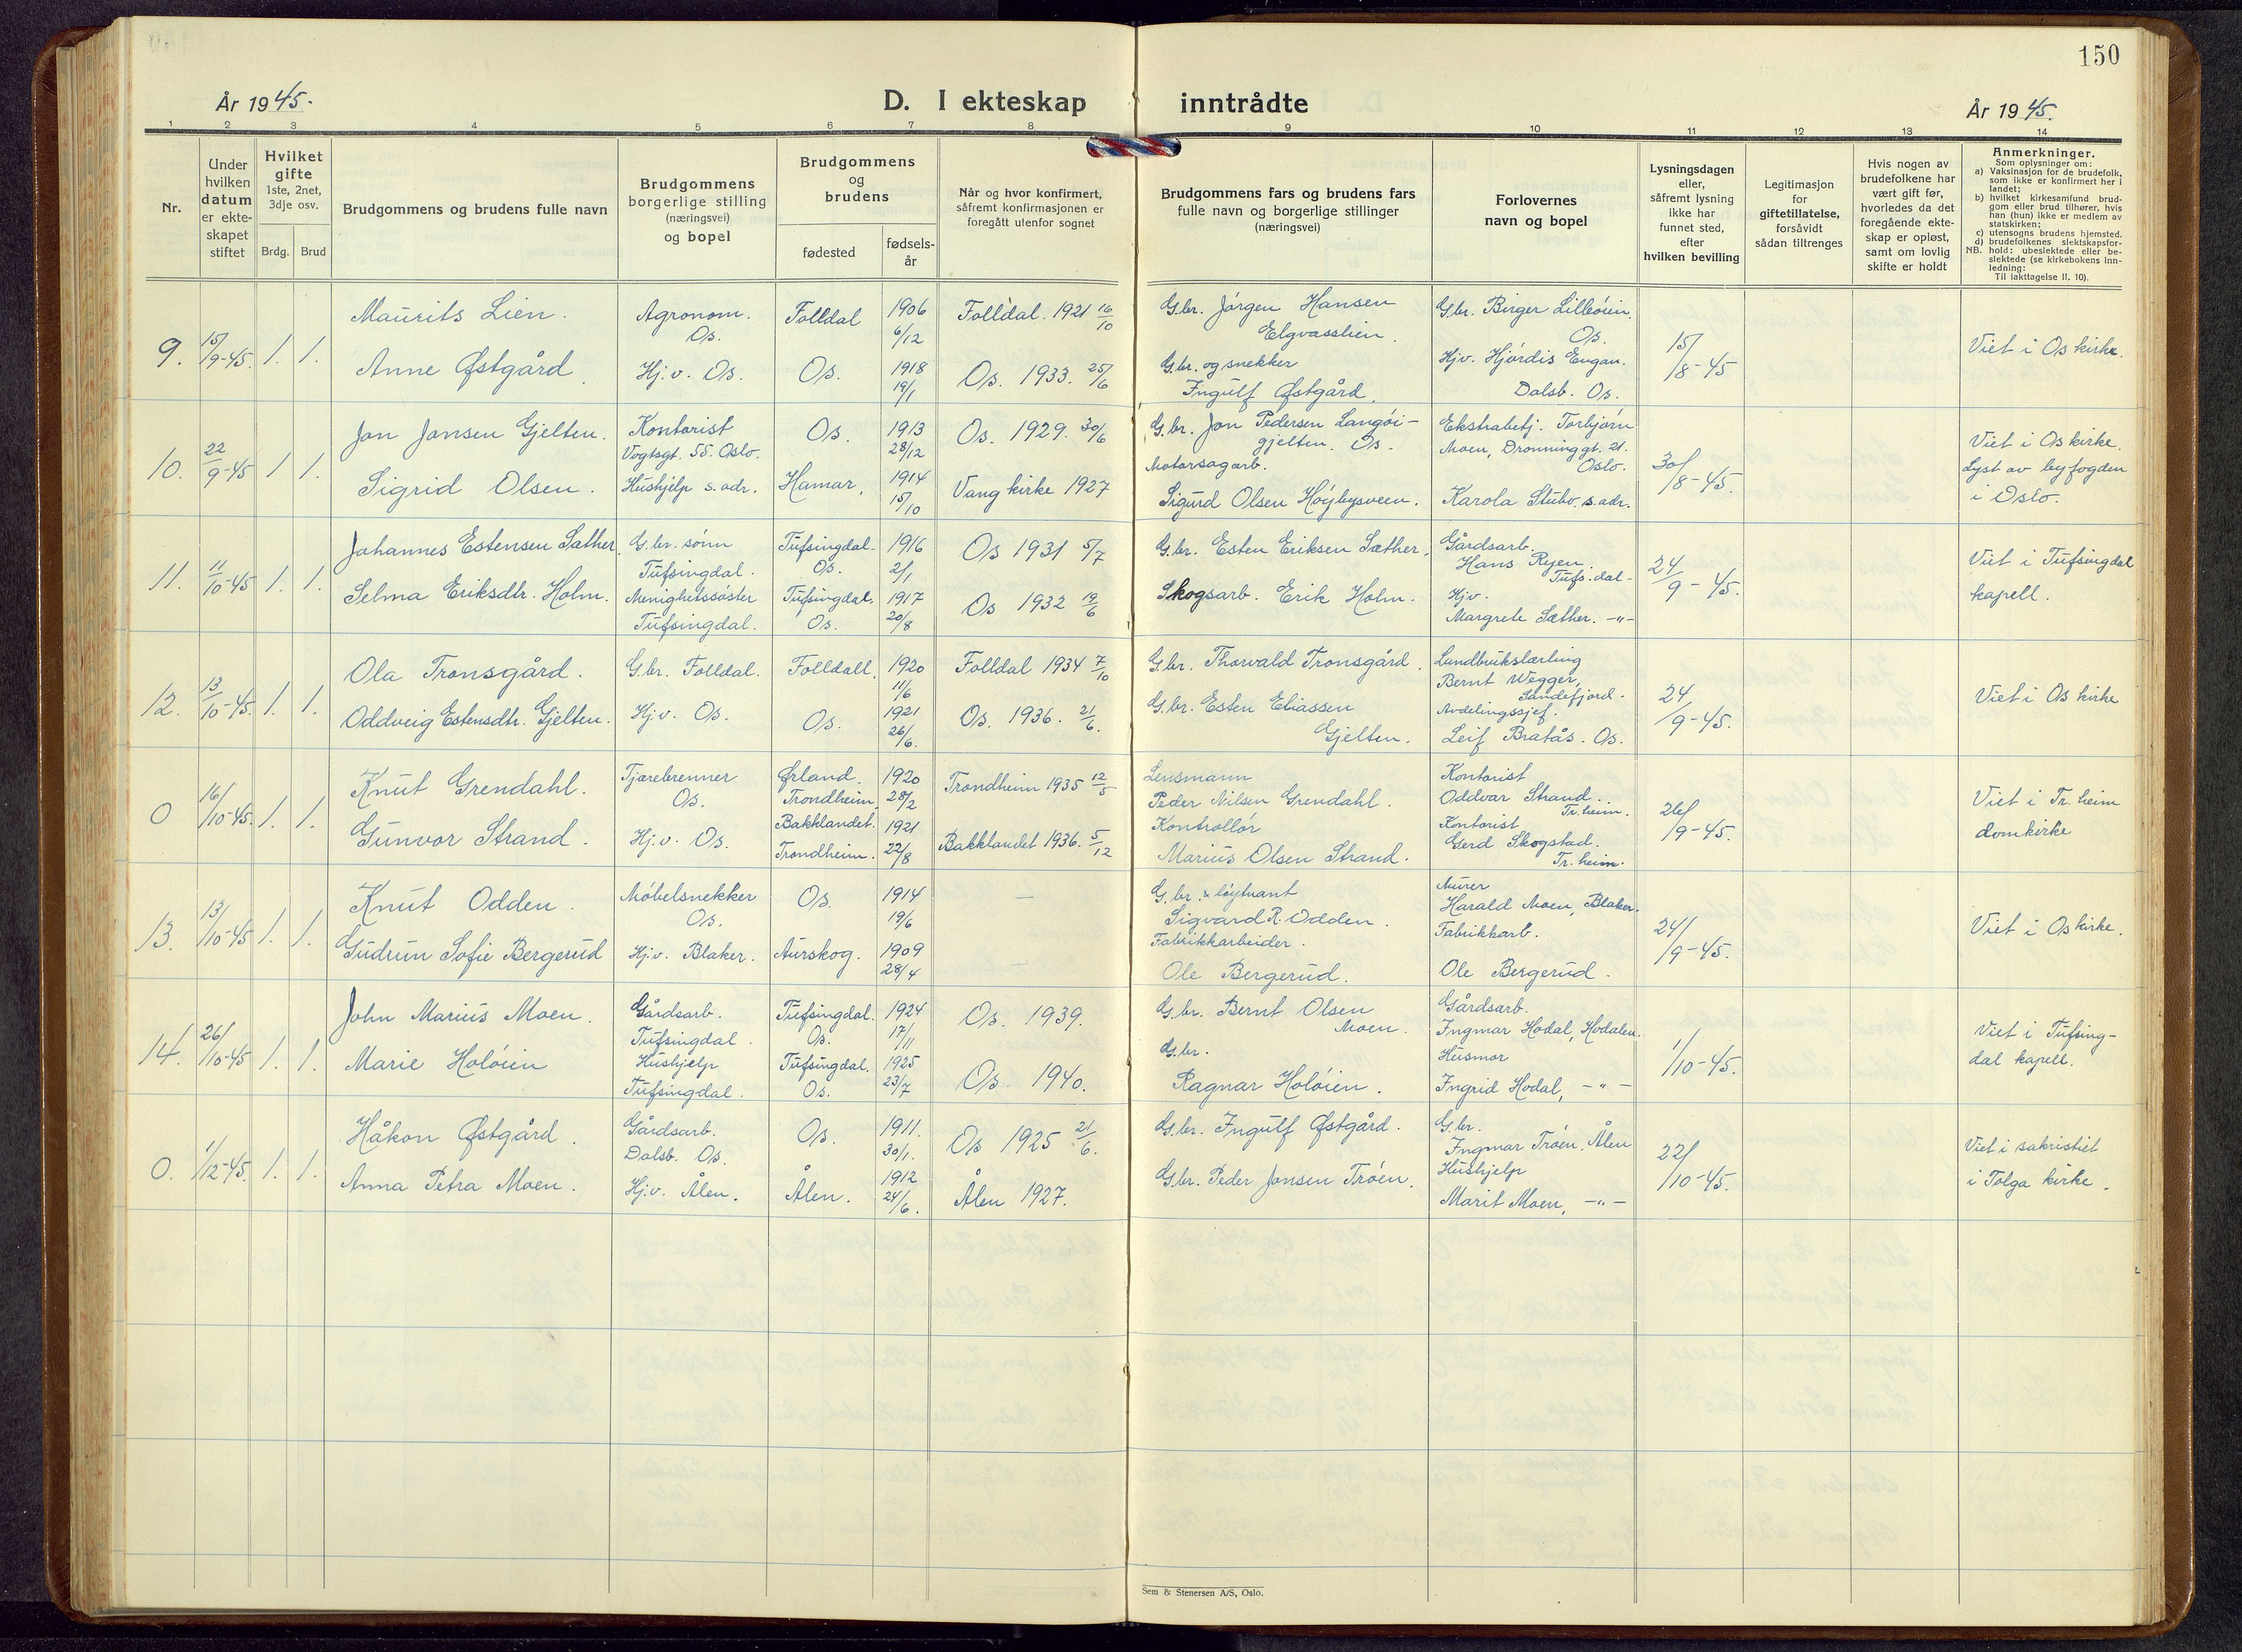 150
År 1945.
D. I ekteskap inntrådte
År 1945.
1 2 3 4 5 6 7 8 9 10 11 12 13 14
Nr.
Under hvilken datum er ekteskapet stiftet
Hvilket gifte
1ste, 2net, 3dje osv.
Brdg. Brud
Brudgommens og brudens fulle navn
Brudgommens borgerlige stilling (næringsvei) og bopel
Brudgommens og brudens
fødested
fødsels-år
Når og hvor konfirmert, såfremt konfirmasjonen er foregått utenfor sognet
Brudgommens fars og brudens fars fulle navn og borgerlige stillinger (næringsvei)
Forlovernes navn og bopel
Lysningsdagen eller, såfremt lysning ikke har funnet sted, efter hvilken bevilling
Legitimasjon for giftetillatelse, forsåvidt sådan tiltrenges
Hvis nogen av brudefolkene har vært gift før, hvorledes da det foregående ekte-skap er opløst, samt om lovlig skifte er holdt
Anmerkninger.
Som oplysninger om:
a) Vaksinasjon for de brudefolk, som ikke er konfirmert her i landet;
b) hvilket kirkesamfund brud-gom eller brud tilhører, hvis han (hun) ikke er medlem av statskirken;
c) utensogns brudens hjemsted.
d) brudefolkenes slektskapsfor-hold: ubeslektede eller be-slektede (se kirkebokens inn-ledning:
NB. Til iakttagelse II. 10).
9. 15/9-45 1. 1.
Maurits Lien.
Agronom. Os.
Folldal
1906 6/12
Folldal. 1921 16/10
G.br. Jörgen Hansen Elgvasslien.
G.br. Birger Lilleöien. Os.
15/8-45
Viet i Os kirke.
Anne Østgård.
Hj.v. Os.
Os.
1918 19/1
Os. 1933. 25/6
G.br. og snekker Ingulf Østgård.
Hjv. Hjördis Engan. Dalsb. Os.
10. 22/9-45 1 1.
Jon Jonsen Gjelten.
Kontorist Vogtsgt. 55. Oslo.
Os.
1913 28/12
Os. 1929. 30/6
G.br. Jon Pedersen Langöi-gjelten. Os.
Ekstrabetj. Torbjörn Moen, Dronninggt. 21. Oslo.
30/8-45.
Viet i Os kirke. Lyst av byfogden i Oslo.
Sigrid Olsen.
Hushjelp s. adr.
Hamar,
1914 15/10
Vang kirke 1927
Motorsagarb. Sigurd Olsen Höybysveen.
Karola Stubo. s. adr.
11. 11/10-45 1. 1.
Johannes Estensen Sæther.
G.br. sönn Tufsingdal.
Tufsingdal. Os.
1916 2/1
Os 1931 5/7
G.br. Esten Eriksen Sæther,
Gårdsarb. Hans Ryen. Tufs.dal-
24/9-45.
Viet i Tufsingdal kapell.
Selma Eriksdtr. Holm.
Menighetssöster Tufsingdal.
Tufsingdal, Os.
1917 20/8
Os 1932 19/6
Skogsarb. Erik Holm.
Hjv. Margrete Sæther. -"-
12. 13/10-45. 1. 1.
Ola Tronsgård.
G.br. Folldal.
Folldall.
1920 11/6
Folldal 1934 7/10
G.br. Thorvald Tronsgård.
Landbrukslærling Bernt Wegger, Sandefjord.
24/9-45.
Viet i Os kirke
Oddveig Estensdtr. Gjelten.
Hj.v. Os.
Os.
1921 26/6.
Os. 1936. 21/6.
G.br. Esten Eliassen Gjelten.
Avdelingssjef. Leif Bratås. Os.
0 16/10-45. 1. 1.
Knut Grendahl.
Tjærebrenner Os.
Ørland. Trondheim
1920 28/2
Trondheim 1935 12/5
Lensmann Peder Nilsen Grendahl.
Kontorist Oddvar Strand. Tr.heim.
26/9-45.
Viet i Tr.heim domkirke
Gunvor Strand.
Hj.v. Os.
Bakklandet. Trondheim.
1921 22/8
Bakklandet 1936. 5/12
Kontrollör Marius Olsen Strand.
Kontorist Gerd Skogstad. Tr.heim.
13. 13/10-45 1. 1.
Knut Odden.
Möbelsnekker Os.
Os.
1914 19/6
—
G.br. & löytnant Sigvard R. Odden.
Murer Harald Moen, Blaker.
24/9-45.
Viet i Os kirke.
Gudrun Sofie Bergerud
Hj.v. Blaker.
Aurskog.
1909 28/4
—
Fabrikkarbeider. Ole Bergerud.
Fabrikkarb. Ole Bergerud.
14. 26/10-45 1. 1.
John Marius Moen.
Gårdsarb. Tufsingdal.
Tufsingdal. Os.
1924 17/11
Os. 1939.
G.br. Bernt Olsen Moen.
Gårdsarb. Ingmar Hodal, Hodalen.
1/10-45.
Viet i Tufsing-dal kapell.
Marie Holöien
Hushjelp Tufsingdal.
Tufsingdal. Os.
1925 23/7
Os. 1940.
G.br. Ragnar Holöien.
Husmor Ingrid Hodal, -"-
0. 1/12-45. 1. 1.
Håkon Østgård.
Gårdsarb. Dalsb. Os.
Os.
1911. 30/1.
Os 1925 21/6.
G.br. Ingulf Østgård.
G.br. Ingmar Tröen. Ålen
22/10-45.
Viet i sakristiet i Tolga kirke.
Anna Petra Moen.
Hj.v. Ålen.
Ålen.
1912 24/6.
Ålen 1927.
G.br. Peder Jonsen Tröen.
Hushjelp Marit Moen, -"-
Sem & Stenersen A/S, Oslo.